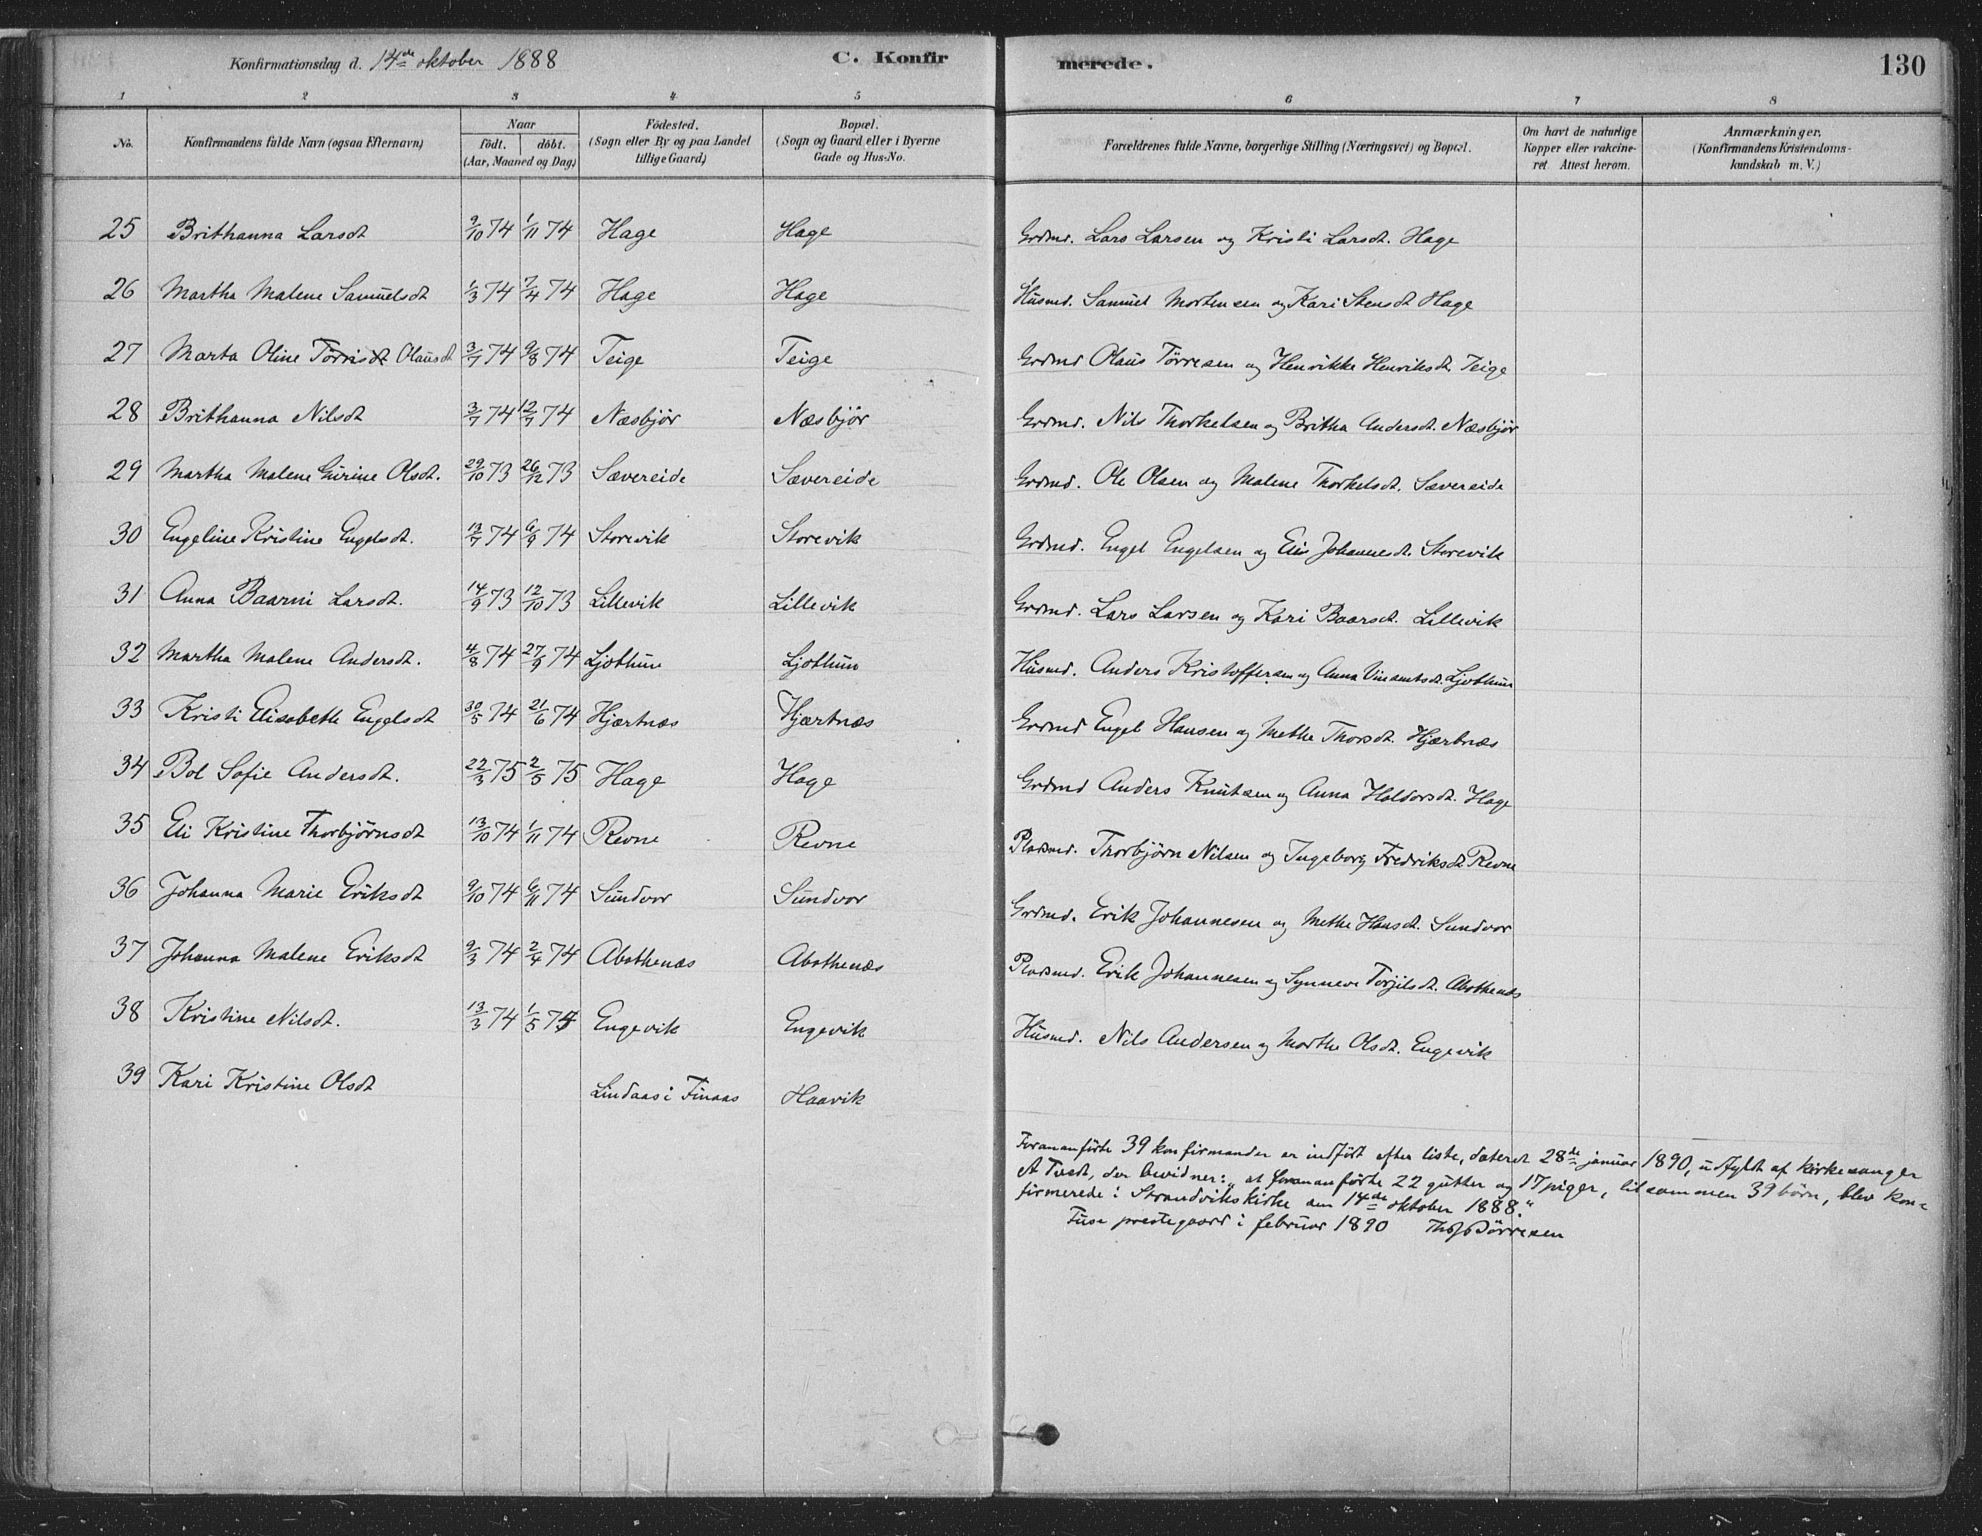 Konfirmationsdag d. 14de oktober 1888 C. Konfirmerede. 130
1 2 3 4 5 6 7 8
No. Konfirmandens fulde Navn (ogsaa Efternavn) Naar födt. döbt. (Aar, Maaned og Dag) Födested. (Sogn eller By og paa Landet tillige Gaard) Bopæl. (Sogn og Gaard eller i Byerne Gade og Hus-No. Forældrenes fulde Navne, borgerlige Stilling (Næringsvei) og Bopæl. Om havt de naturlige Kopper eller vakcineret. Attest herom. Anmærkninger. (Konfirmandens Kristendomskundskab m. V.)
25 Brithanna Larsdt 9/10 74 1/11 74 Hage Hage Grdmd. Lars Larsen og Kristi Larsdt. Hage
26 Martha Malene Samuelsdt 1/3 74 7/4 74 Hage Hage Husmd. Samuel Mortensen og Kari Stensdt Hage
27 Marta Oline Törrisdt Olausdt 3/7 74 9/8 74 Teige Teige Grdmd Olaus Törresen og Henrikke Henriksdt. Teige
28 Brithanna Nilsdt 3/7 74 12/7 74 Næsbjör Næsbjör Grdmd. Nils Thorkelsen og Britha Andersdt. Næsbjör
29 Martha Malene Gurine Olsdt. 29/10 73 26/12 73 Sævereide Sævereide Grdmd. Ole Olsen og Malene Thorkelsdt. Sævereide
30 Engeline Kristine Engelsdt. 13/7 74 6/9 74 Storevik Storevik Grdmd. Engel Engelsen og Elis Johannesdt. Storevik
31 Anna Baarni Larsdt. 14/9 73 12/10 73 Lillevik Lillevik Grdmd. Lars Larsen og Kari Baarsdt. Lillevik
32 Martha Malene Andersdt. 4/8 74 27/9 74 Ljothun Ljothun Husmd. Anders Kristoffersen og Anna Vinsentsdt. Ljothun
33 Kristi Elisabeth Engelsdt 30/5 74 21/6 74 Hjærtnæs Hjærtnæs Grdmd Engel Hansen og Methe Thorsdt. Hjærtnæs
34 Bol Sofie Andersdt. 22/3 75 2/5 75 Hage Hage Grdmd Anders Knutsen og Anna Haldorsdt. Hage
35 Eli Kristine Thorbjörnsdt 13/10 74 1/11 74 Revne Revne Pladsmd. Thorbjörn Nilsen og Ingeborg Fredriksdt Revne
36 Johanna Marie Eriksdt 9/10 74 6/11 74 Sundvor Sundvor Grdmd. Erik Johannesen og Methe Hansdt. Sundvor
37 Johanna Malene Eriksdt 9/3 74 2/4 74 Abothenæs Abothenæs Pladsmd. Erik Johannesen og Synneve Torjilsdt. Abothenæs
38 Kristine Nilsdt. 13/3 74 1/5 74 Engevik Engevik Husmd. Nils Andersen og Marthe Olsdt. Engevik
39 Kari Kristine Olsdt Lindaas i Finaas Haavik
Forananförte 39 konfirmander er indfört efter liste, dateret 28de januar 1890, udfyldt af kirkesanger
A Tvedt, der bevidner: „at forananförte 22 gutter og 17 piger, tilsammen 39 börn, blev kon-
firmerede i Strandvikskirke den 14de oktober 1888."
Fuse prestegaard i februar 1890 Börresen